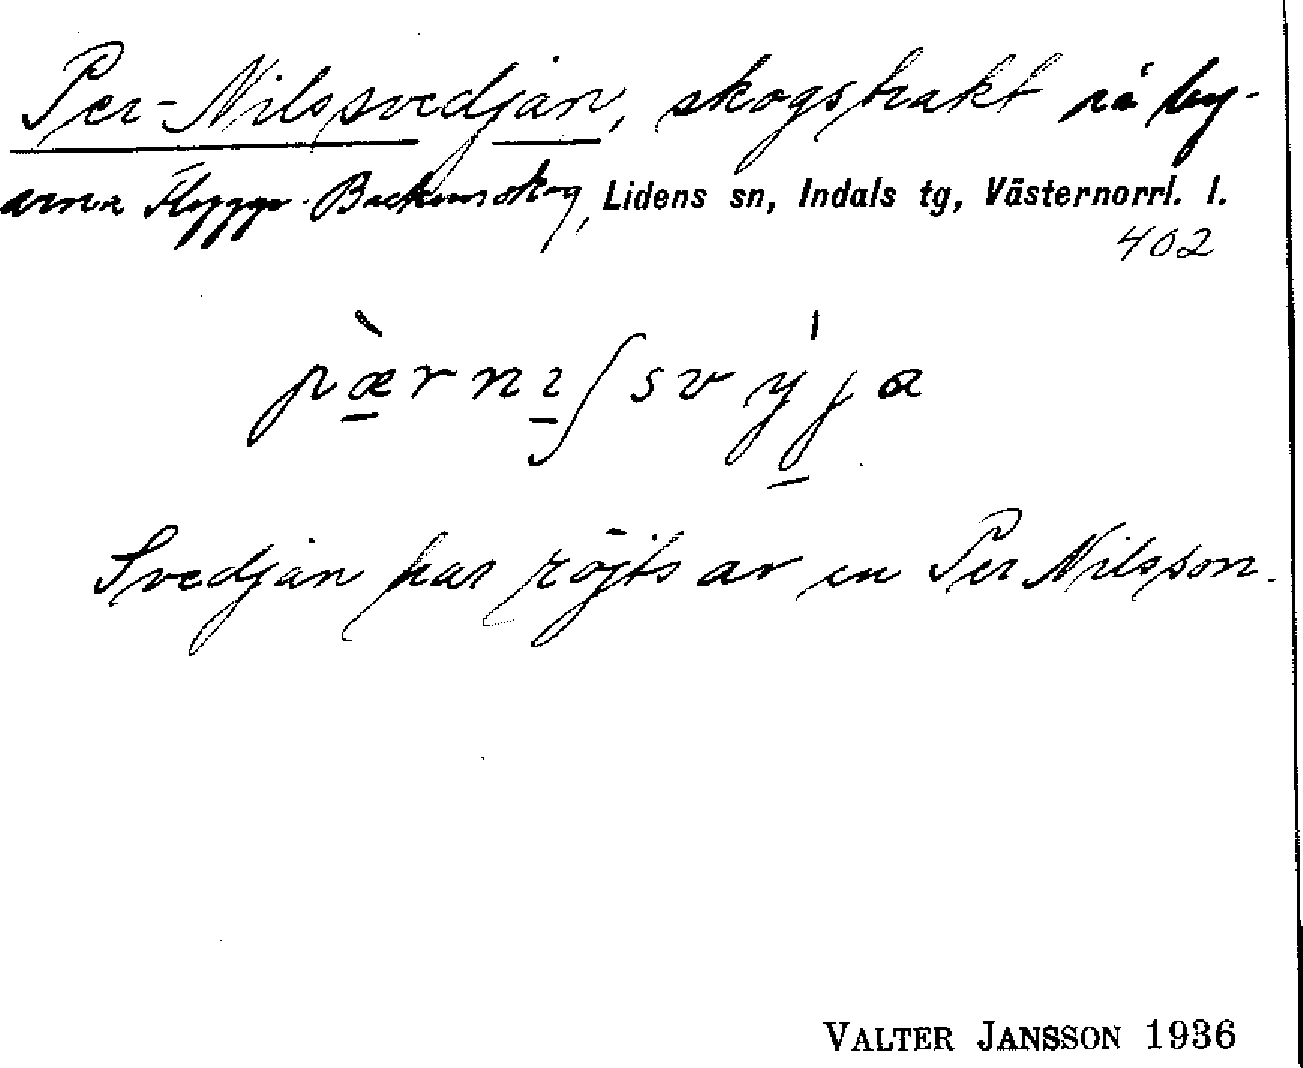 Per-Nilssvedjan, skogstrakt på by-
arna Flygge Backens skog, Lidens sn, Indals tg, Västernorrl. l.
402
pæ̀rnɪʃsvy̍ja
Svedjan har röjts av en Per Nilsson.
VALTER JANSSON 1936